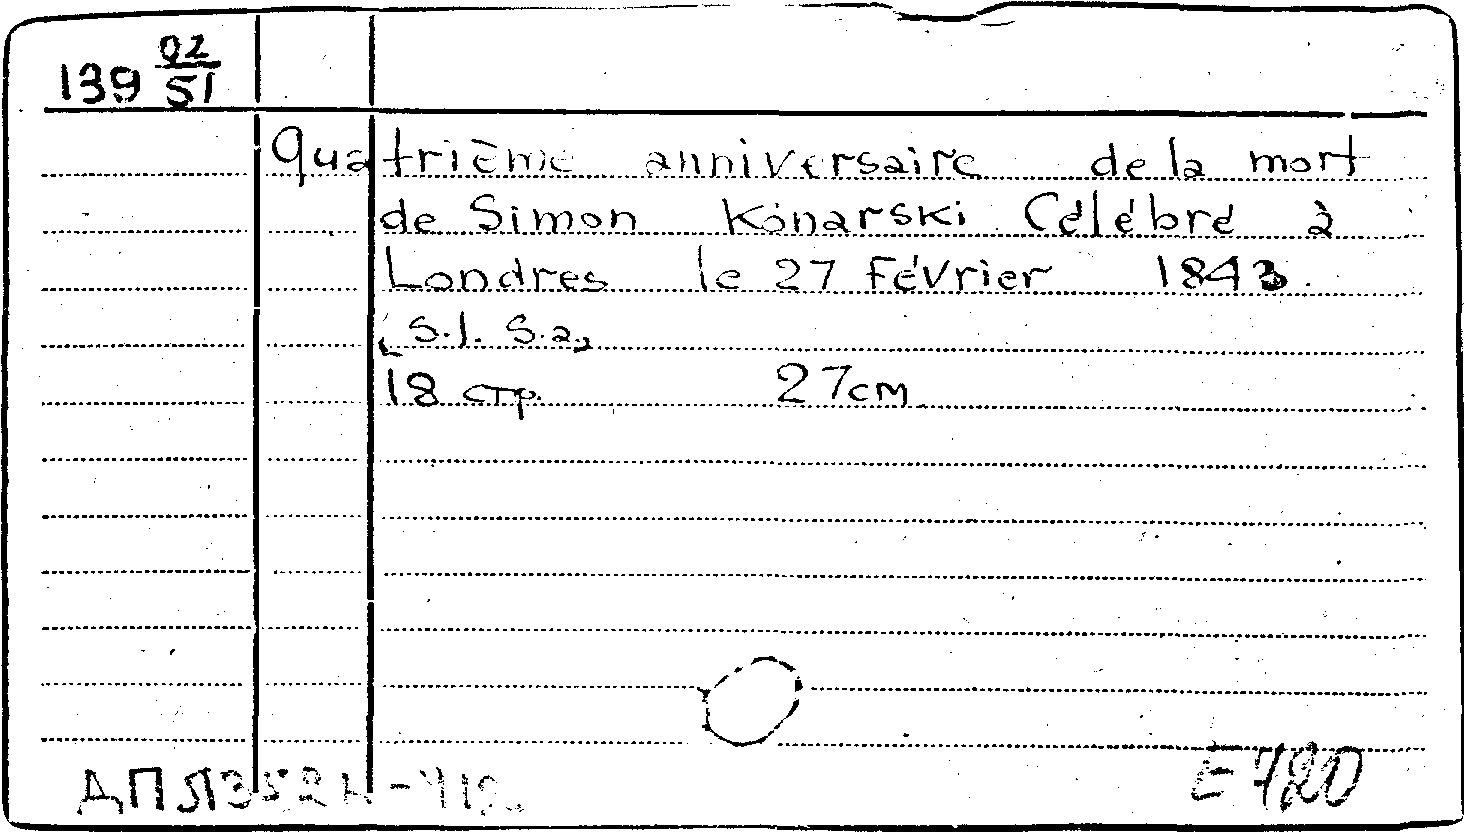 139 02/51
Quatrième anniversaire de la mort
de Simon Konarski Célébré à
Londres le 27 Février 1843.
[S.l. S.a.]
18 стр. 27см
E 720